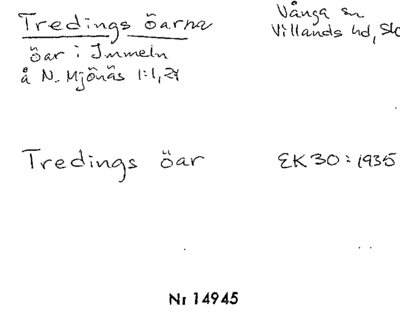 Tredings öarna
öar i Immeln
å N. Mjönäs 1:1, 24
Vånga sn
Villands hd, Sk
Tredings öar
EK 30 : 1935
Nr 14945